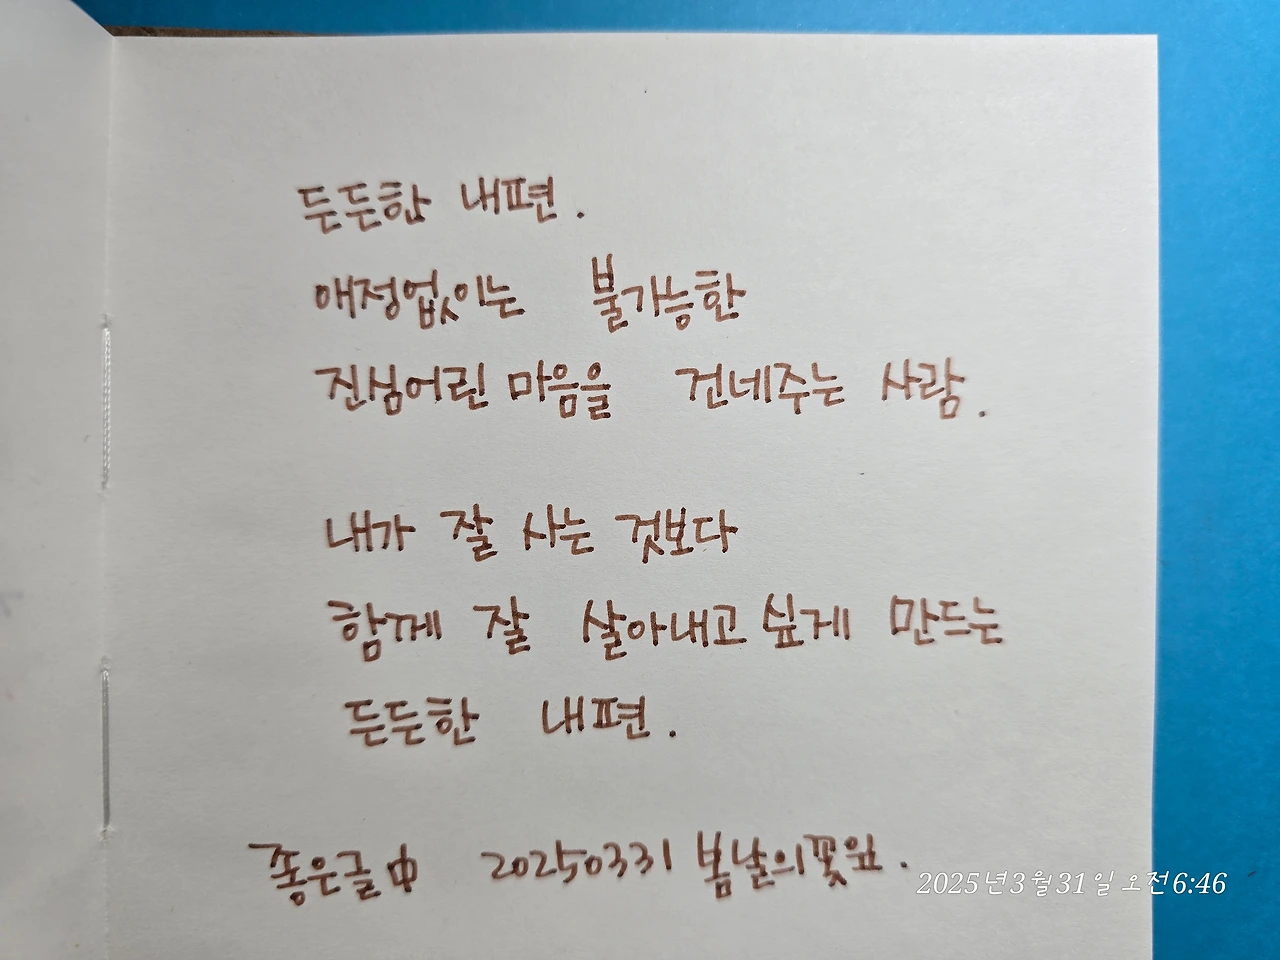 든든한 내편.
애정없이는 불가능한
진심어린 마음을 건네주는 사람.
내가 잘 사는 것보다
함께 잘 살아내고 싶게 만드는
든든한 내편.
좋은글 中 20250331 봄날의꽃요.
2025년3월31일 오전6:46